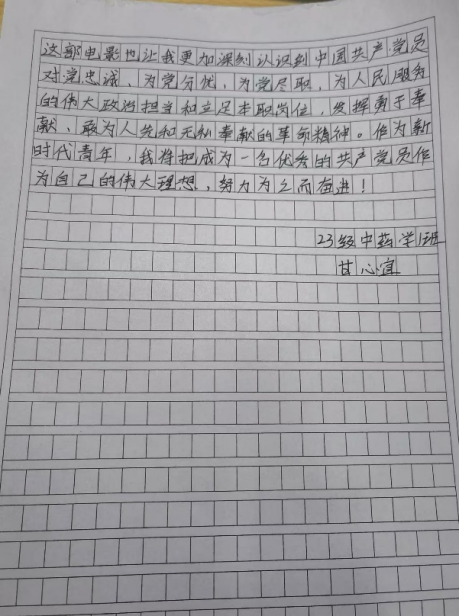 这部电影也让我更加深刻认识到中国共产党员
对党忠诚、为党分忧、为党尽职、为人民服务
的伟大政治担当和立足本职岗位，发挥勇于奉
献、敢为人先和无私奉献的革命精神。作为新
时代青年，我将把成为一名优秀的共产党员作
为自己的伟大理想，努力为之而奋进！
23级中药学1班
甘心宜